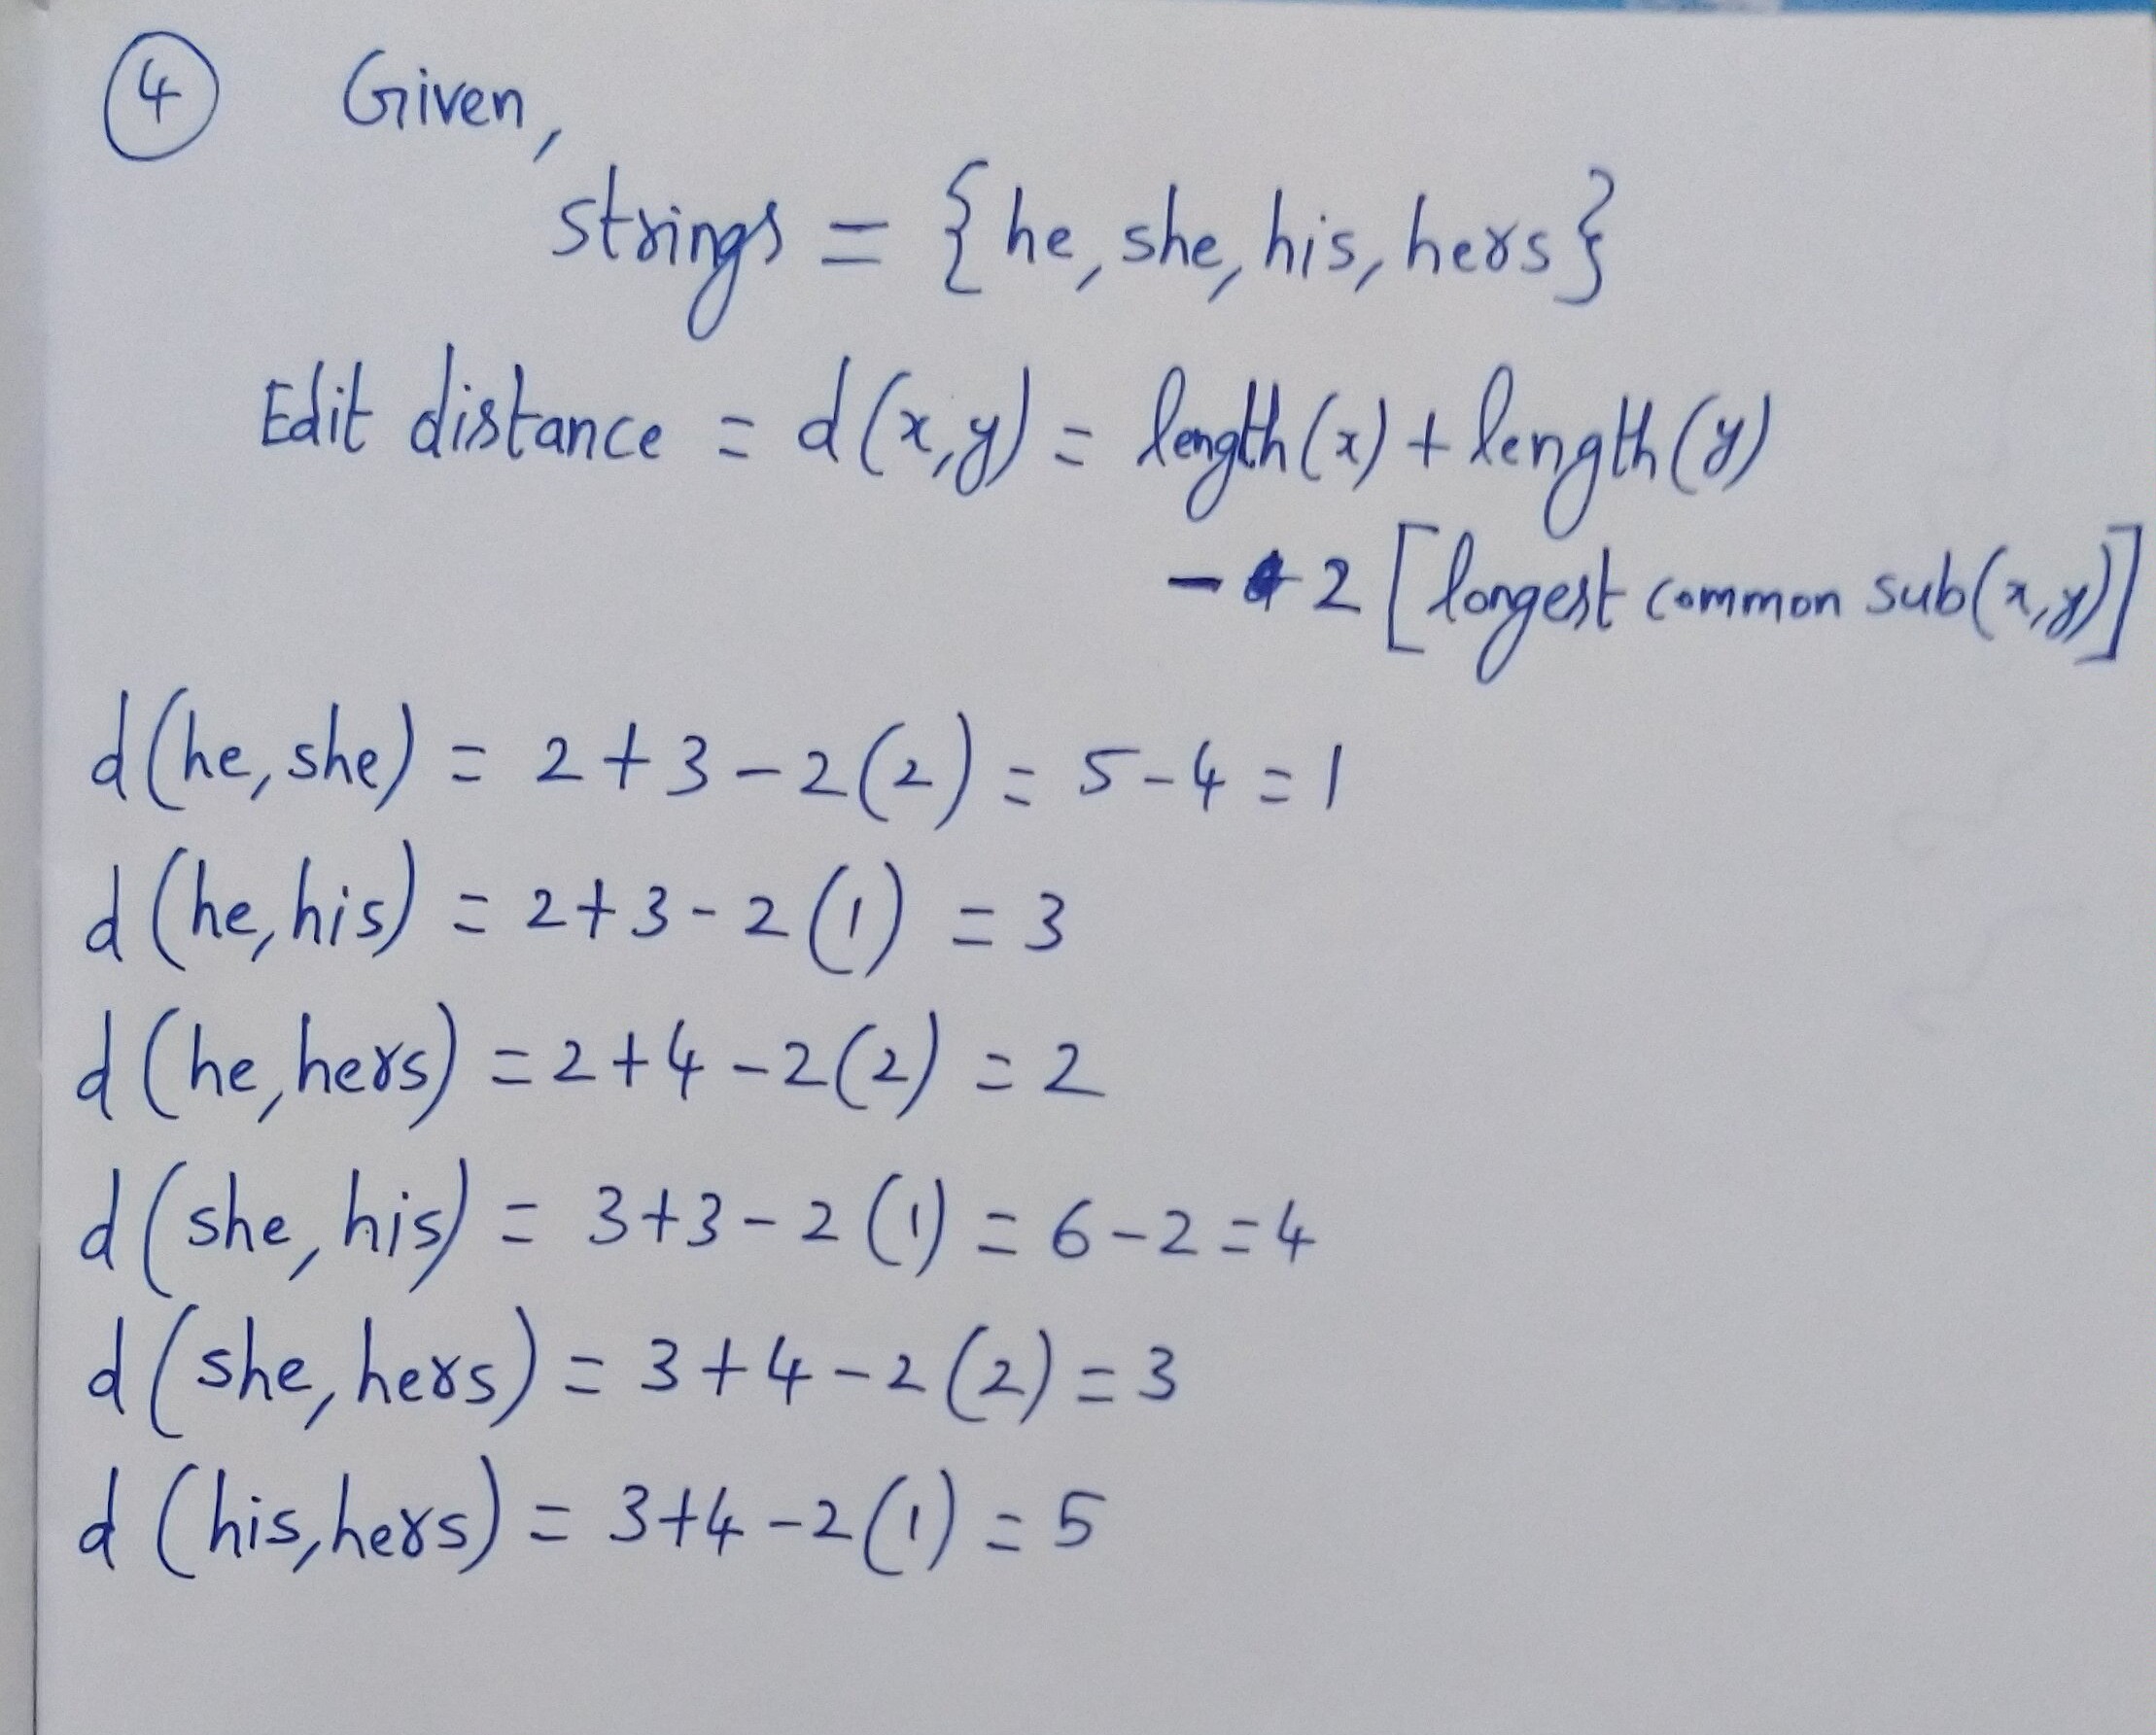 4 Given,
strings = {he, she, his, hers}
Edit distance = d(x,y) = length(x) + length(y)
- 2 [longest common sub(x,y)]
d(he, she) = 2+3-2(2) = 5-4 = 1
d(he, his) = 2+3-2(1) = 3
d(he, hers) = 2+4-2(2) = 2
d(she, his) = 3+3-2(1) = 6-2 = 4
d(she, hers) = 3+4-2(2) = 3
d(his, hers) = 3+4-2(1) = 5